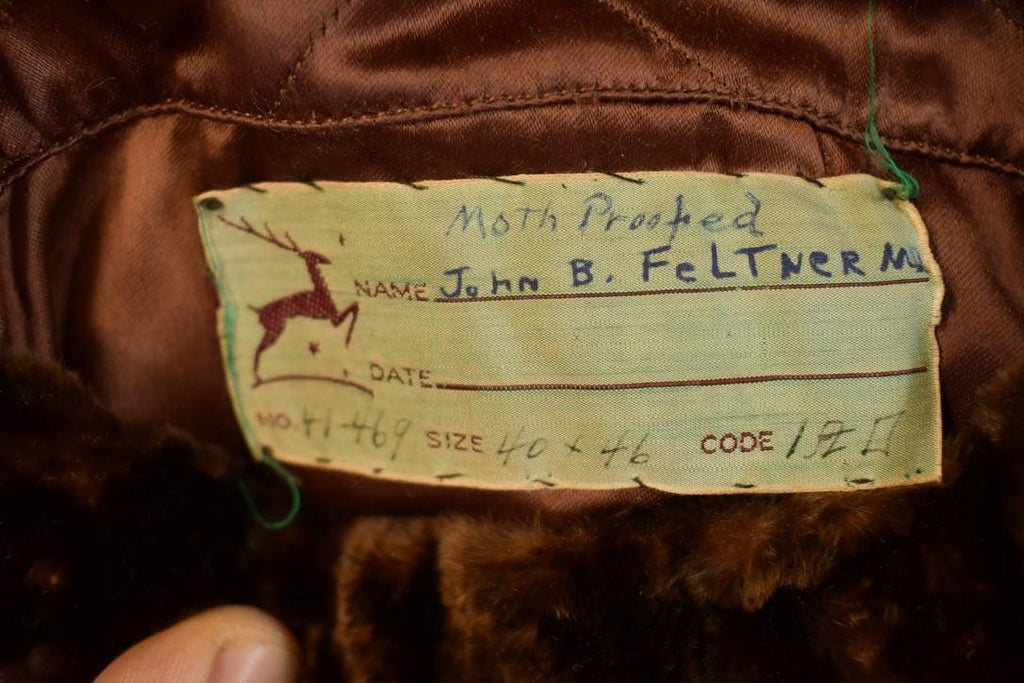 Moth Proofed
NAME John B. FeLTNeR MD
DATE
NO. 41-469 SIZE 40 + 46 CODE